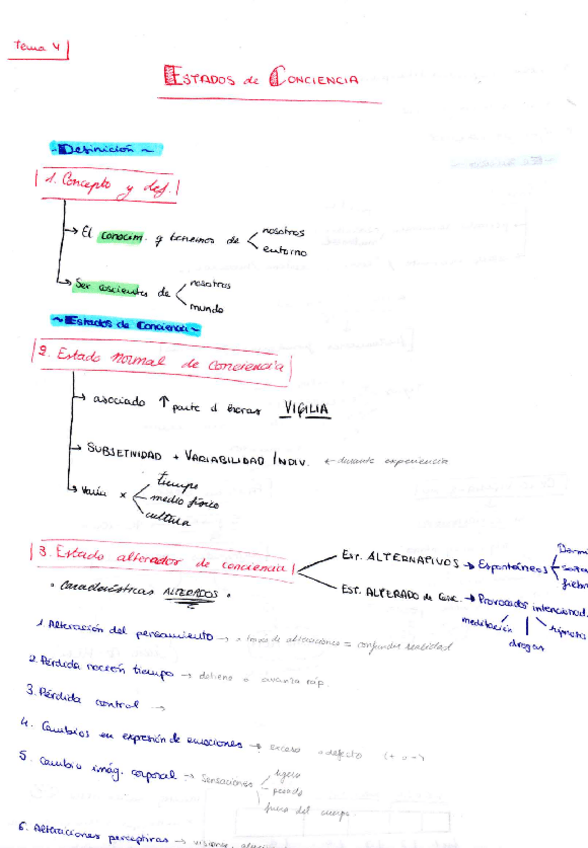 Tema 4
ESTADOS de CONCIENCIA
~Definición~
1. Concepto y def.
→ El conocim. q tenemos de < nosotros
entorno
→ Ser coscientes de < nosotros
mundo
~Estados de Conciencia~
2. Estado normal de conciencia
→ asociado ↑ parte d horas VIGILIA
→ SUBSETIVIDAD + VARIABILIDAD INDIV. ← durante experiencia
→ Varía x < tiempo
medio físico
cultura
3. Estado alterador de conciencia
Est. ALTERNATIVOS → Espontáneos
EST. ALTERADO de Conc. → Provocados intencionad.
meditación
drogas
hipnosis
• Características ALTERADOS •
1. Alteración del pensamiento → x través de alteraciones = confundir realidad
2. Pérdida noción tiempo → detiene o avanza ráp.
3. Pérdida control →
4. Cambios en expresión de emociones → exceso o defecto (+ o -)
5. Cambio imág. corporal → Sensaciones < ligero
pesado
fuera del cuerpo
6. Alteraciones perceptivas → visiones,